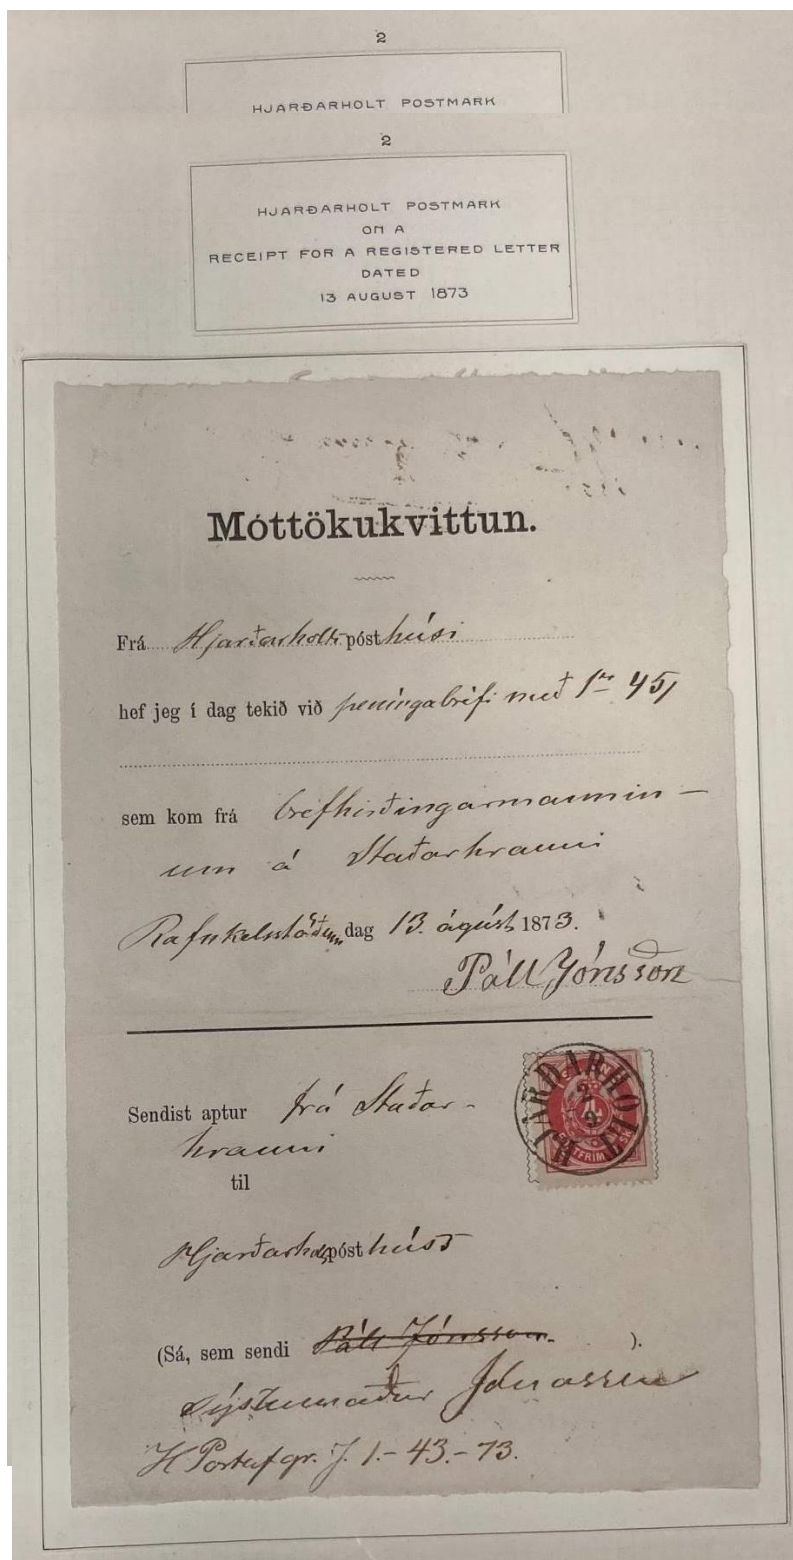 2
HJARÐARHOLT POSTMARK
2
HJARÐARHOLT POSTMARK
ON A
RECEIPT FOR A REGISTERED LETTER
DATED
13 AUGUST 1873
Móttökukvittun.
Frá Hjarðarholts pósthúsi
hef jeg í dag tekið við peníngabréfi með 45
sem kom frá bréfhirðingarmannin-
um á Staðarhrauni
Rafnkelsstöðum dag 13. ágúst 1873.
Páll Jónsson
Sendist aptur frá Staðar-
hrauni
HJARDARHOLT
2
9
4
til
Hjarðarholts pósthúss
(Sá, sem sendi Páll Jónsson ).
Sýslumaður Jónassen
H Postafgr. J. 1.-43.-73.